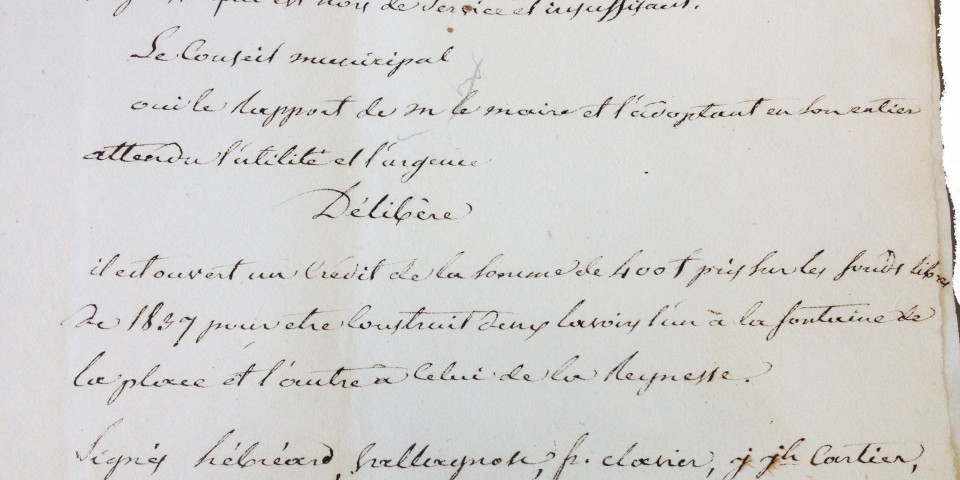 qui est hors de service et insuffisant.
Le Conseil municipal
oui le rapport de m le maire et l'adoptant en son entier
attendu l'utilité et l'urgence
Délibère
il est ouvert un Crédit de la somme de 400 f pris sur les fonds libres
de 1837 pour etre Construit deux lavoirs l'un à la fontaine de
la place et l'autre à Celui de la Reynesse.
Signés hébréard, fr. clavier, j jh Cartier,